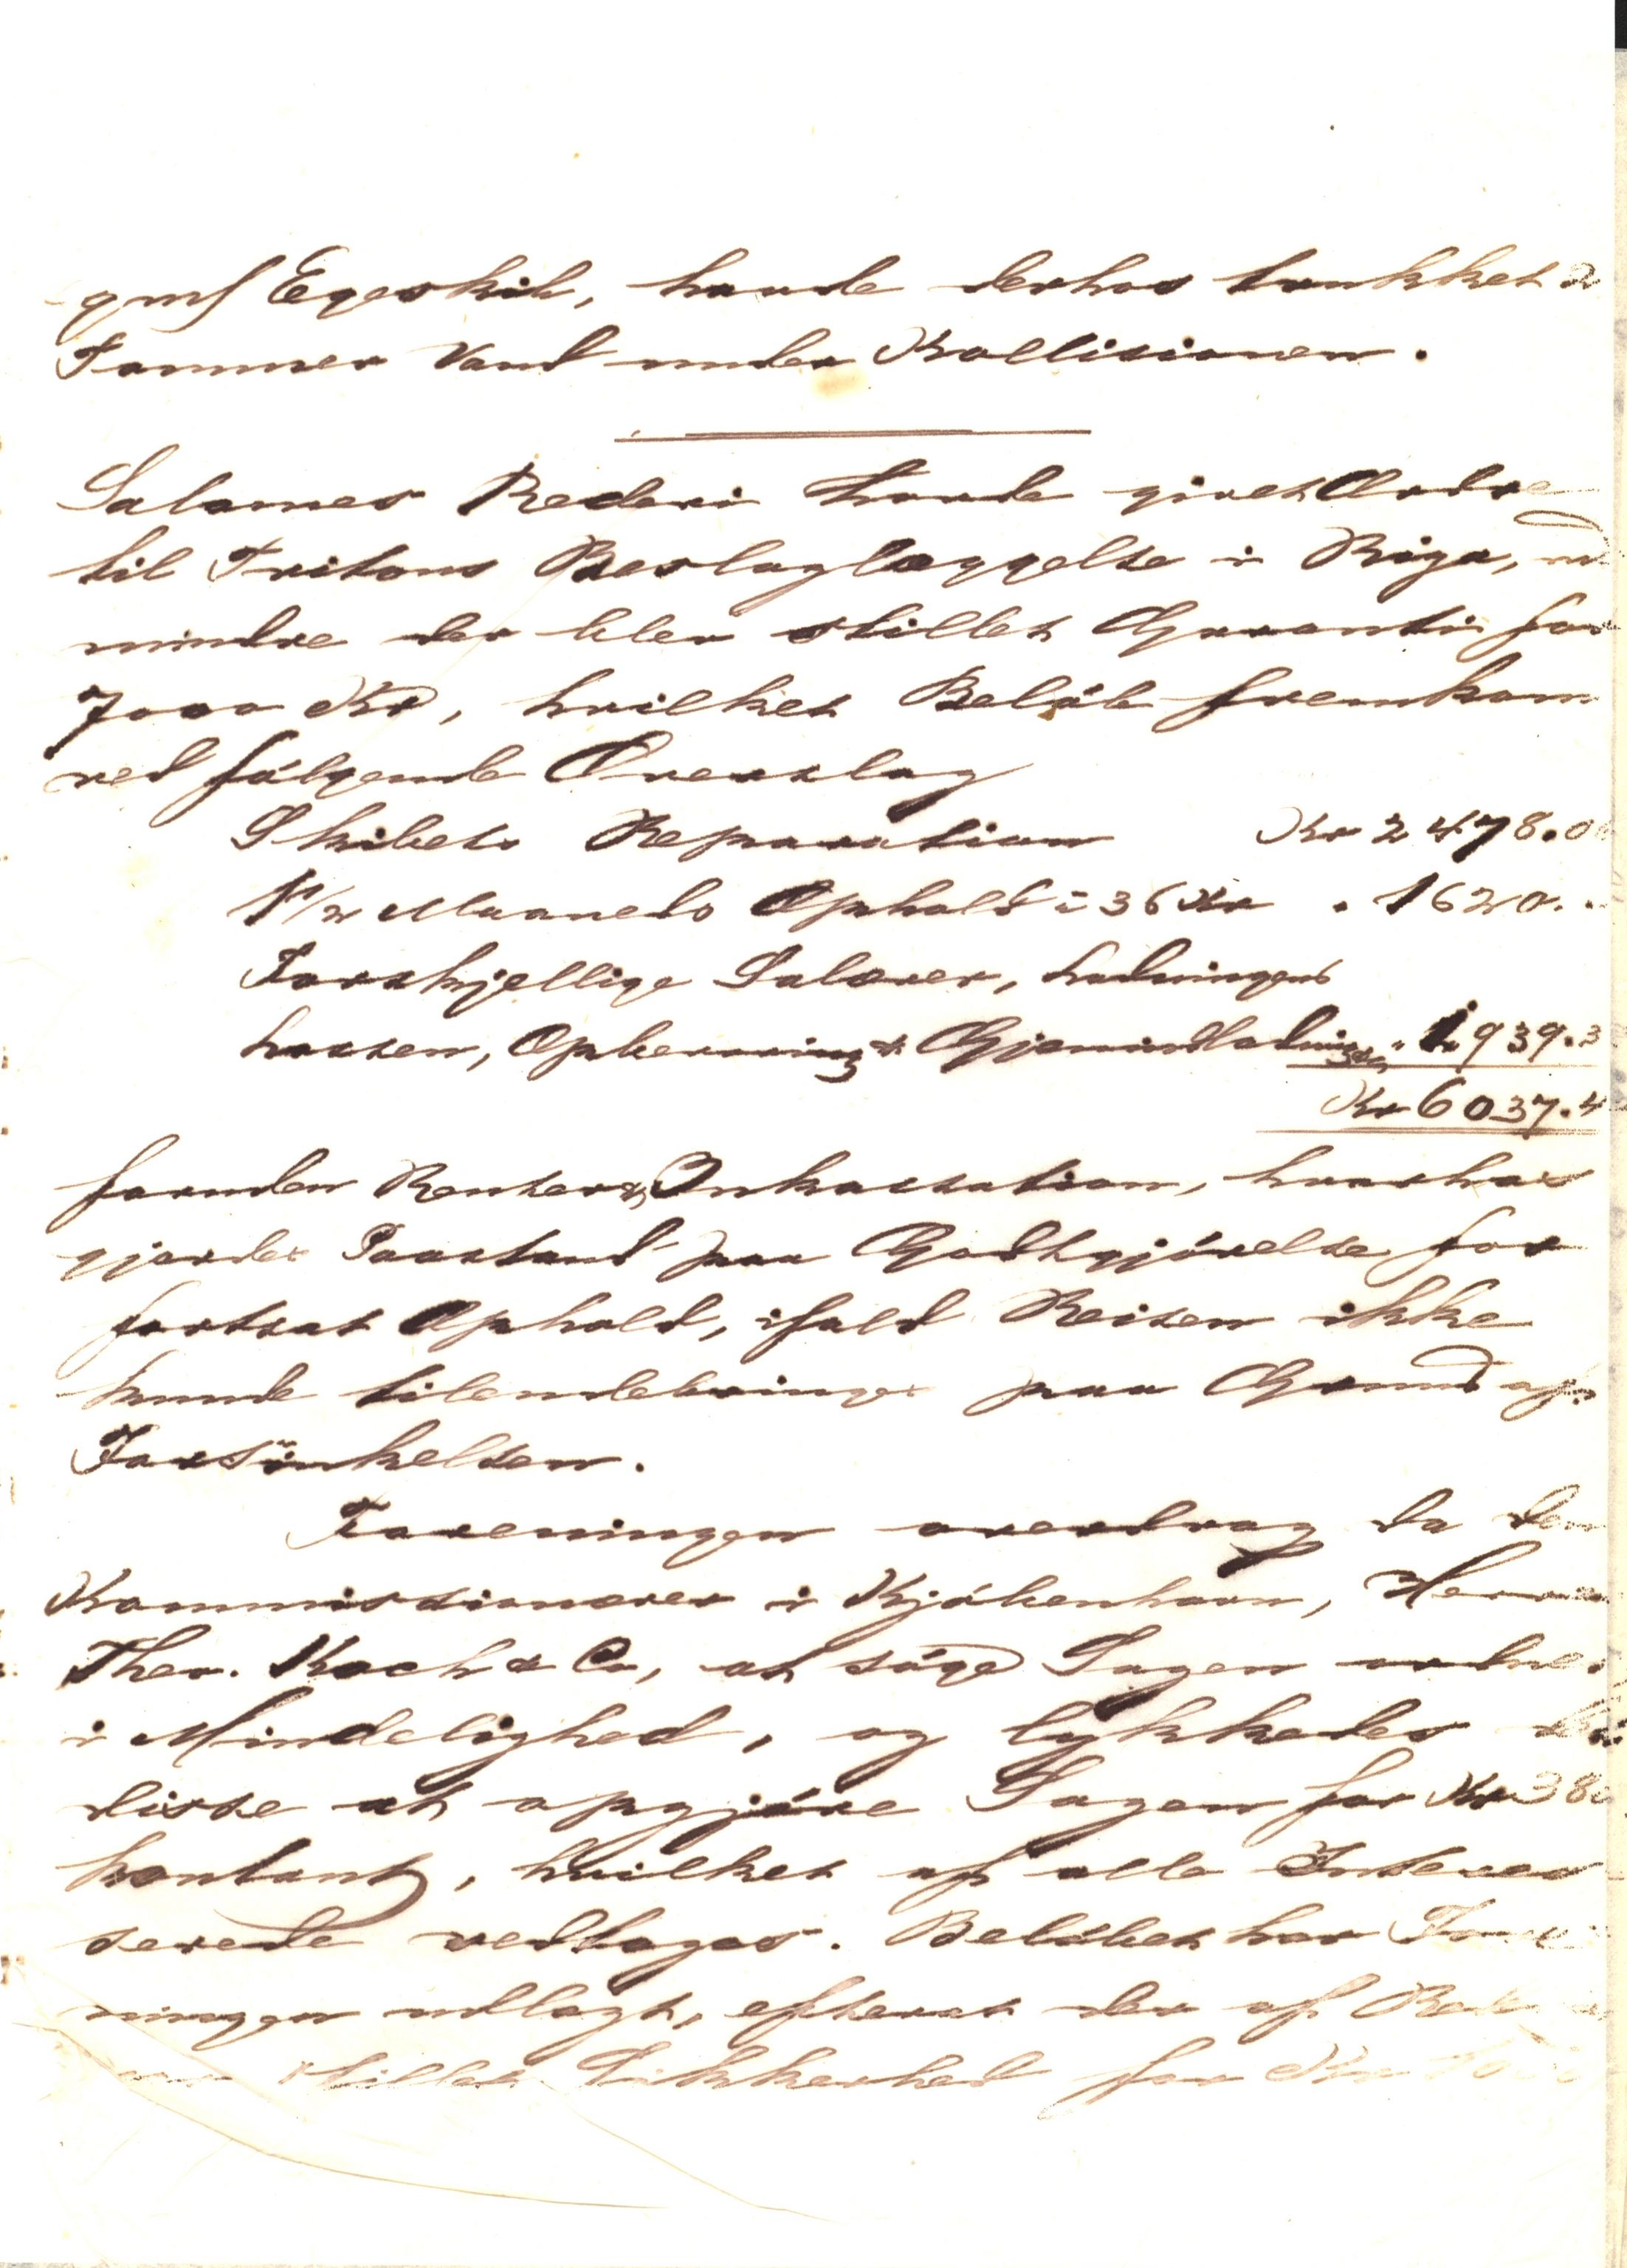 Egeskib, havde derhos trukket 2
Tommer Vand under Kollisionen.
Salomes Rederi havde givet Ordre
til Tritons Beslaglæggelse i Riga, md
mindre der blev stillet Garanti for
7000 Kr, hvilket Belöb fremkom
ved fölgende Overslag
Skibets Reparation Kr 2478.0
1 1/2 Maaneds Ophold à 36 Kr " 1620. "
Forskjellige Salærer, Ladningens
Lossen, Opbevaring & Gjenindladning " 1939.3
Kr 6037.4
foruden Renter & Inkassation, hvorhos
gjordes Paastand paa Godtgjörelse for
fortsat Ophold, ifald Reisen ikke
kunde tilendebringes paa Grund af
Forsinkelsen.
Foreningen overdrog da den
Kommissionærer i Kjöbenhavn, Herrer
Theo. Koch & Co, at söge Sagen ordnet
i Mindelighed, og lykkedes det
disse at opgjöre Sagen for Kr 380
kontant, hvilket af alle Interes
serede vedtoges. Belöbet har Fore
ningen udlagt, efterat der af Rede
stillet Sikkerhed for Kr